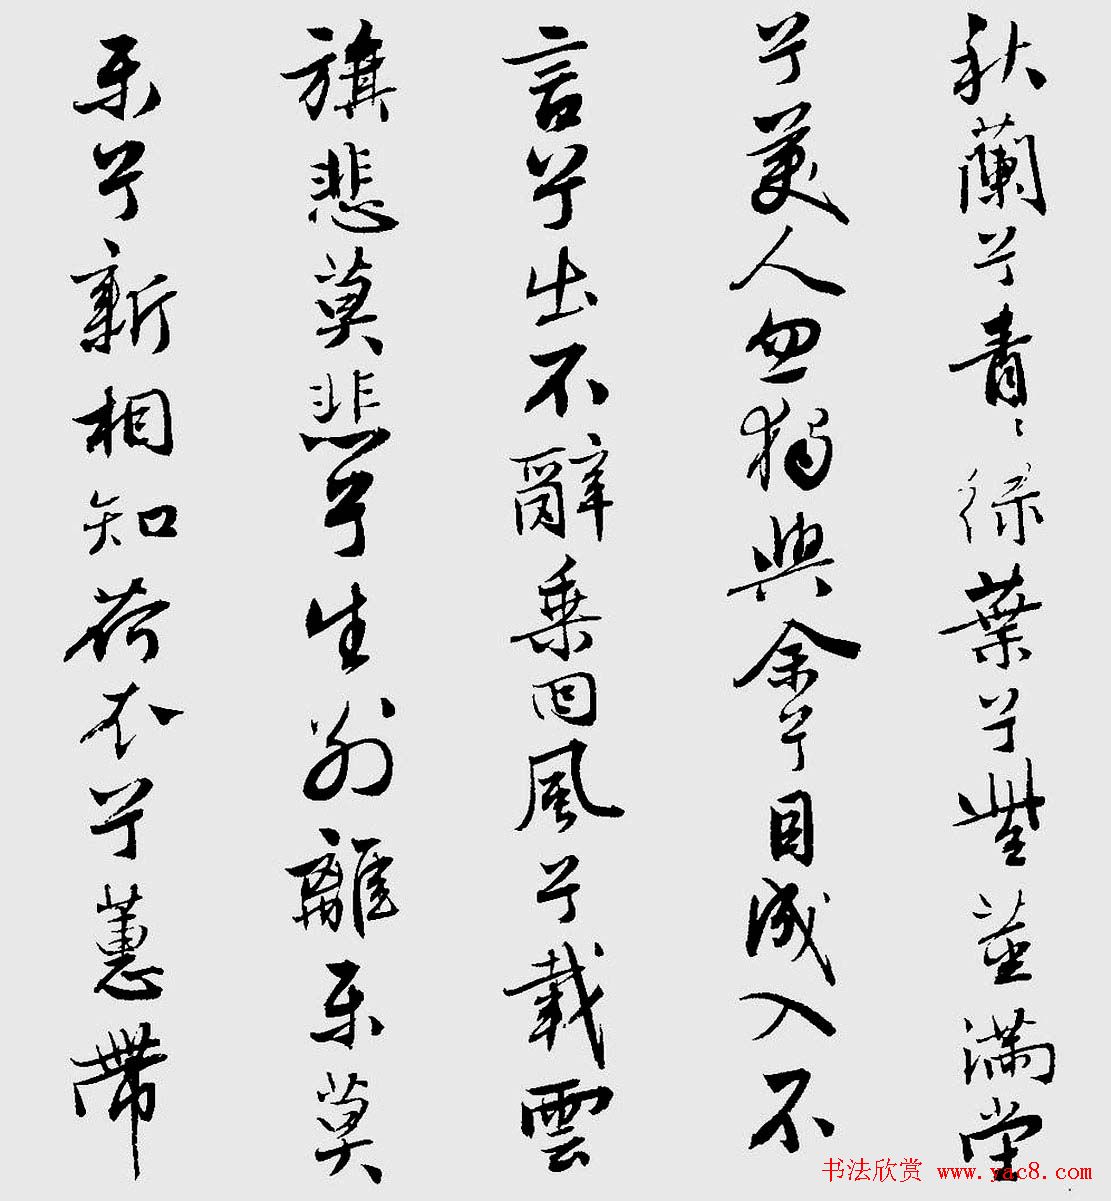 秋蘭兮青々綠葉兮紫莖滿堂
兮美人忽獨與余兮目成入不
言兮出不辭乘回風兮載雲
旗悲莫悲兮生別離樂莫
樂兮新相知荷衣兮蕙帶
书法欣赏 www.yac8.com